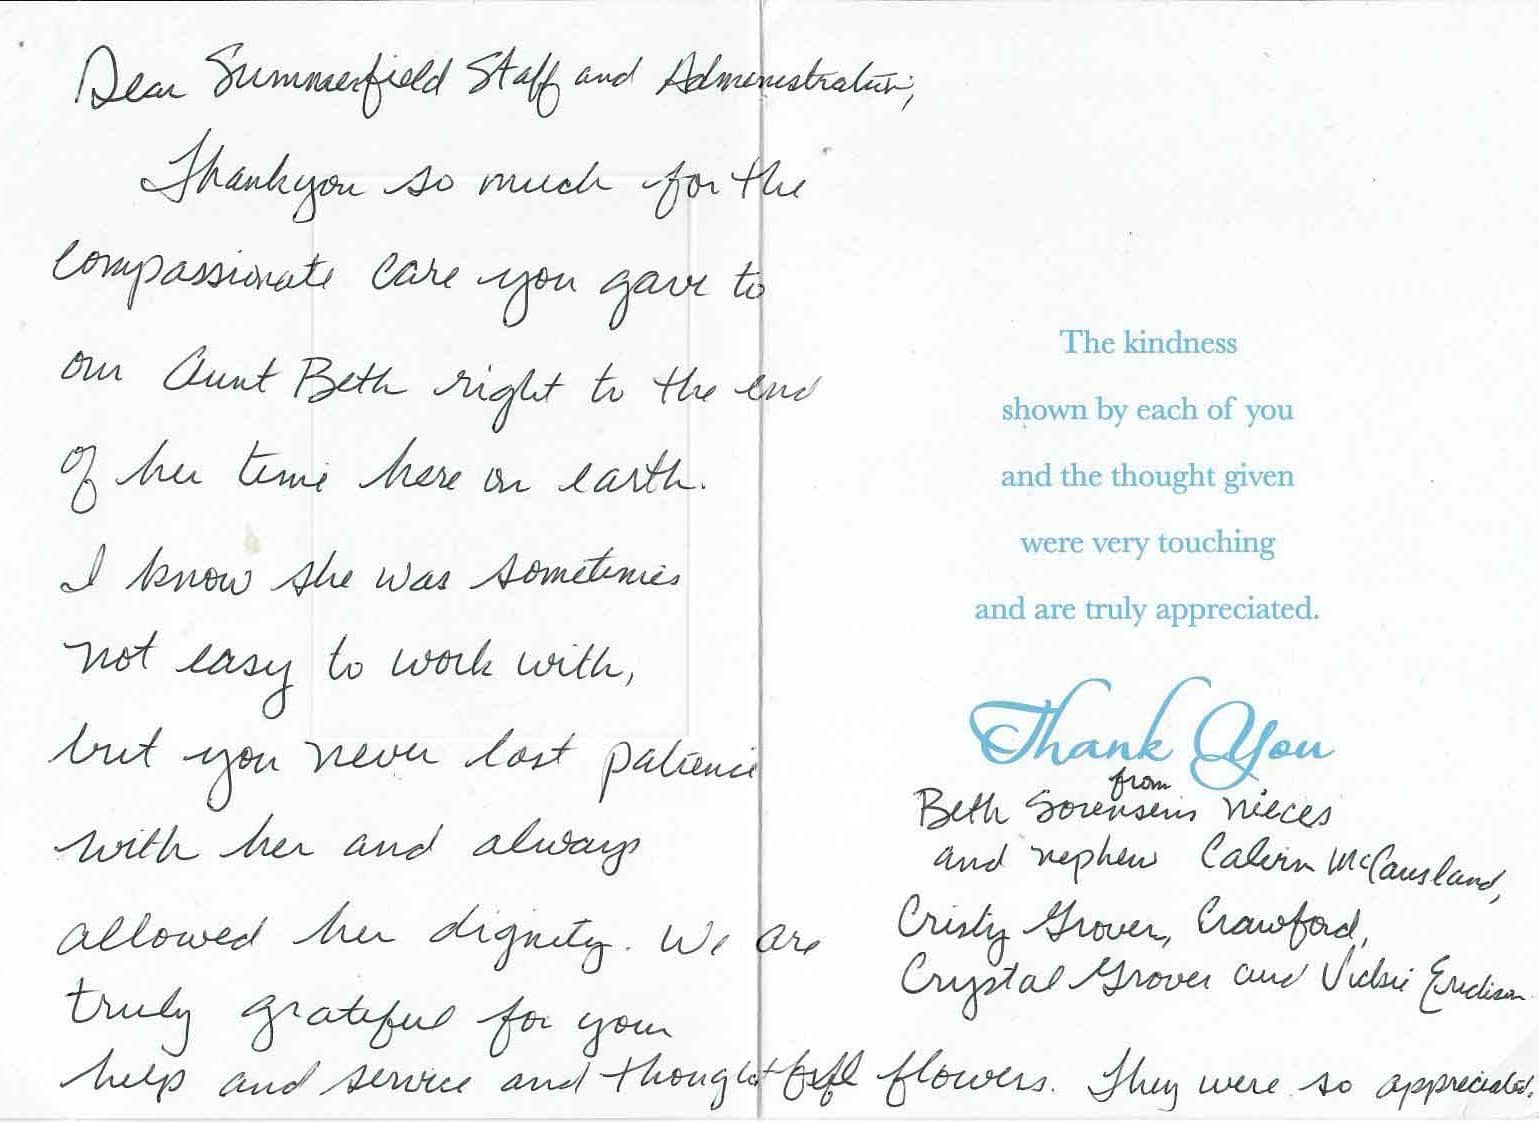 Dear Summerfield Staff and Administration,
Thankyou so much for the
compassionate care you gave to
our Aunt Beth right to the end
of her time here on earth.
I know she was sometimes
not easy to work with,
but you never lost patience
with her and always
allowed her dignity. We are
truly grateful for your
help and service and thoughtful flowers. They were so appreciated.
The kindness
shown by each of you
and the thought given
were very touching
and are truly appreciated.
Thank You
from
Beth Sorensen's nieces
and nephew Calvin McCausland,
Cristy Grover, Crawford,
Crystal Grover and Vickie